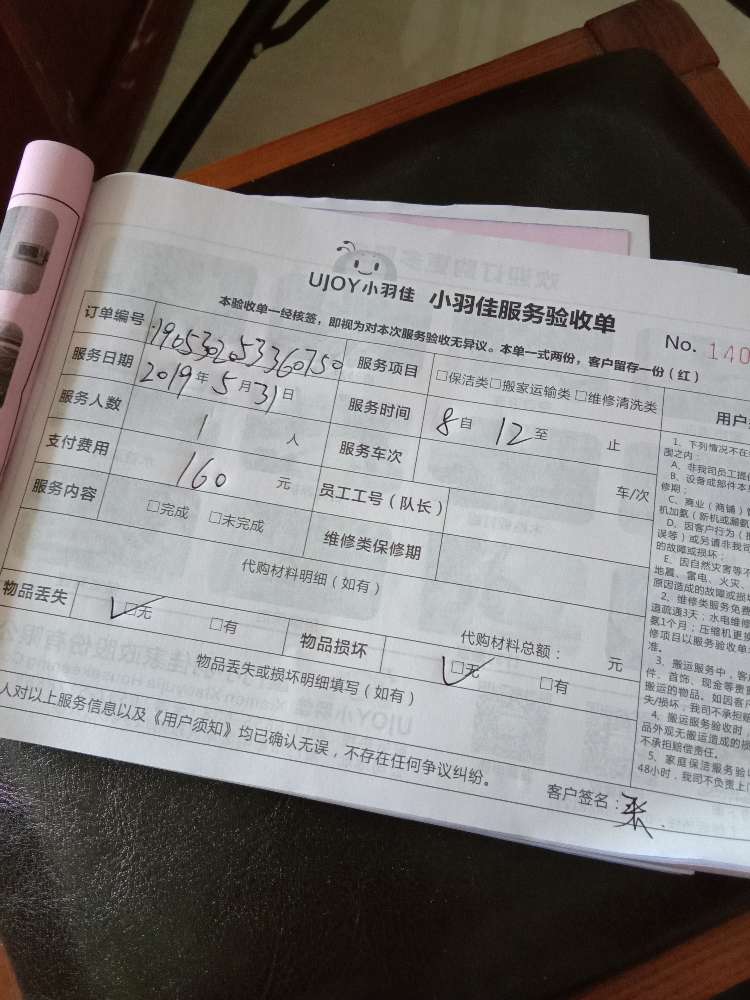 UJOY小羽佳 小羽佳服务验收单
本验收单一经核签，即视为对本次服务验收无异议。本单一式两份，客户留存一份（红）
No. 140
订单编号 1905302053360750 服务项目 □保洁类□搬家运输类□维修清洗类
服务日期 2019年5月31日 服务时间 8自 12至 止
服务人数 1 人 服务车次 车/次
支付费用 160 元 员工工号（队长）
服务内容 □完成 □未完成 维修类保修期
代购材料明细（如有）
代购材料总额： 元
物品丢失 □无 □有 物品损坏 □无 □有
物品丢失或损坏明细填写（如有）
人对以上服务信息以及《用户须知》均已确认无误，不存在任何争议纠纷。
客户签名：
用户
1、下列情况不在
围之内：
A、非我司员工提
B、设备或部件本
修期；
C、商业（商铺）
机加氨（新机或漏
D、因客户行为（
误等）或另请非我司
的故障或损坏；
E、因自然灾害等不
地震、雷电、火灾、
原因造成的故障或损
2、维修类服务免
道疏通3天；水电维修
氨1个月；压缩机更换
修项目以服务验收单
准。
3、搬运服务中，客
件、首饰、现金等贵
搬运的物品。如因客
失/损坏，我司不承担
4、搬运服务验收时
品外观无搬运造成的
不承担赔偿责任。
5、家庭保洁服务验
48小时，我司不负责上